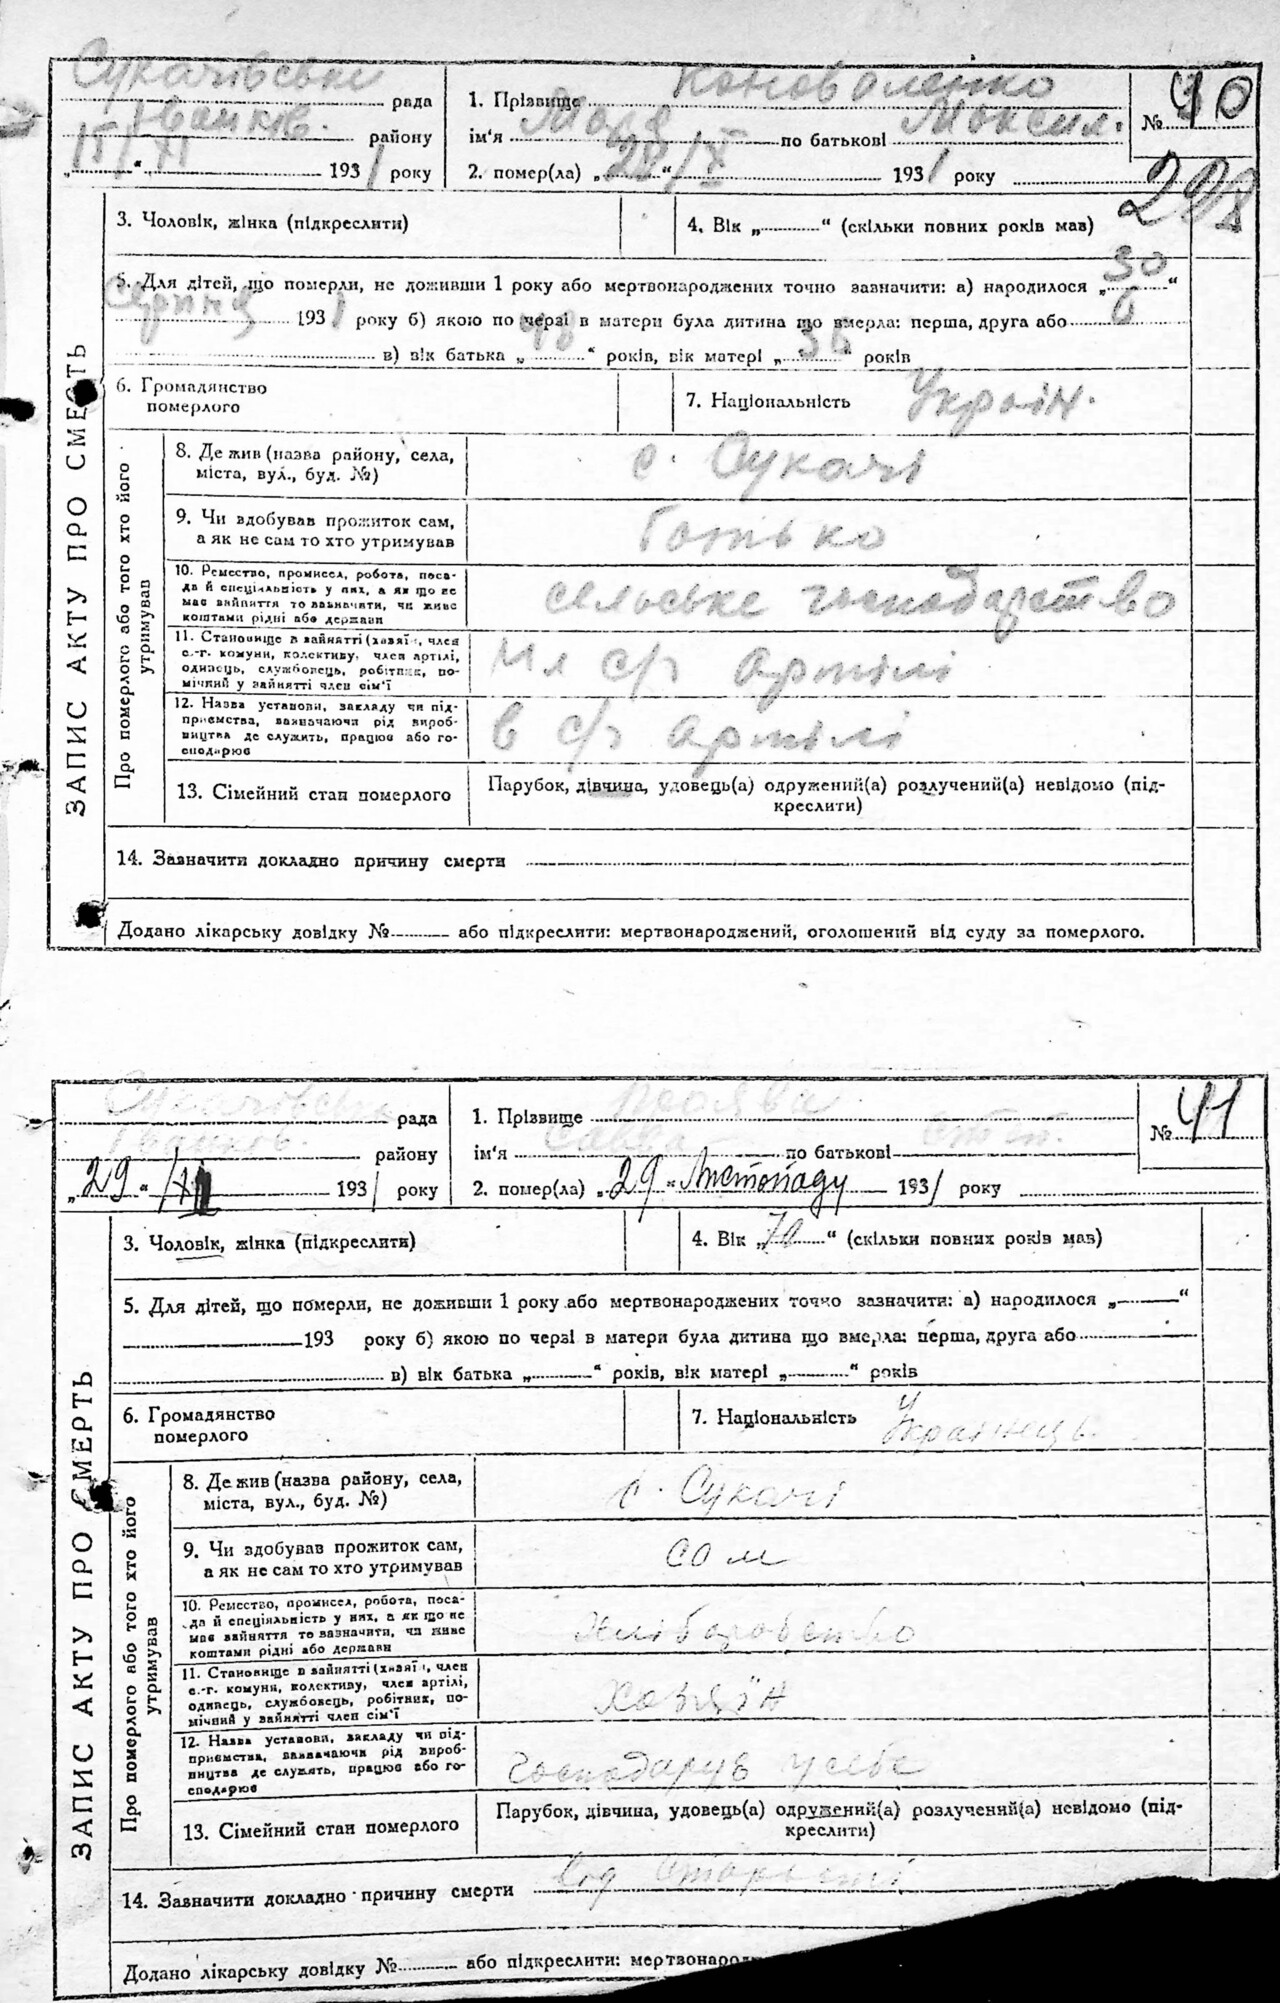 Сукачівська рада
Іванків. району
„15/XI“ 1931 року
1. Прізвище Коноваленко
ім'я по батькові Максим.
2. помер(ла) „ “ /X 1931 року
№ 40
3. Чоловік, жінка (підкреслити)
4. Вік „ “ (скільки повних років мав)
5. Для дітей, що померли, не доживши 1 року або мертвонароджених точно зазначити: а) народилося „30“
Серпня 1931 року б) якою по черзі в матери була дитина що вмерла: перша, друга або 6
в) вік батька „ “ років, вік матері „36“ років
6. Громадянство
померлого
7. Національність Україн.
ЗАПИС АКТУ ПРО СМЕРТЬ
Про померлого або того хто його
утримував
8. Де жив (назва району, села,
міста, вул., буд. №)
с. Сукачі
9. Чи здобував прожиток сам,
а як не сам то хто утримував
Батько
10. Ремество, промисел, робота, поса-
да й спеціяльність у них, а як що не
має зайняття то зазначити, чи живе
коштами рідні або держави
сельське господарство
11. Становище в зайнятті (хазяїн, член
с.-г. комуни, колективу, член артілі,
одинець, службовець, робітник, по-
мічний у зайнятті член сім'ї
чл с/г артілі
12. Назва установи, закладу чи під-
приємства, зазначаючи рід вироб-
ництва де служить, працює або го-
сподарює
в с/г артілі
13. Сімейний стан померлого
Парубок, дівчина, удовець(а) одружений(а) розлучений(а) невідомо (під-
креслити)
14. Зазначити докладно причину смерти
Додано лікарську довідку № або підкреслити: мертвонароджений, оголошений від суду за померлого.
Сукачівська рада
Іванков. району
„29“ /XI 1931 року
1. Прізвище
ім'я Савка по батькові Степ.
2. помер(ла) „29“ Листопаду 1931 року
№ 41
3. Чоловік, жінка (підкреслити)
4. Вік „70“ (скільки повних років мав)
5. Для дітей, що померли, не доживши 1 року або мертвонароджених точно зазначити: а) народилося „ “
193 року б) якою по черзі в матери була дитина що вмерла: перша, друга або
в) вік батька „ “ років, вік матері „ “ років
6. Громадянство
померлого
7. Національність Українець.
ЗАПИС АКТУ ПРО СМЕРТЬ
Про померлого або того хто його
утримував
8. Де жив (назва району, села,
міста, вул., буд. №)
с. Сукачі
9. Чи здобував прожиток сам,
а як не сам то хто утримував
сам
10. Ремество, промисел, робота, поса-
да й спеціяльність у них, а як що не
має зайняття то зазначити, чи живе
коштами рідні або держави
Хліборобство
11. Становище в зайнятті (хазяїн, член
с.-г. комуни, колективу, член артілі,
одинець, службовець, робітник, по-
мічний у зайнятті член сім'ї
хазяїн
12. Назва установи, закладу чи під-
приємства, зазначаючи рід вироб-
ництва де служить, працює або го-
сподарює
господарув у себе
13. Сімейний стан померлого
Парубок, дівчина, удовець(а) одружений(а) розлучений(а) невідомо (під-
креслити)
14. Зазначити докладно причину смерти від старости
Додано лікарську довідку № або підкреслити: мертвонарод